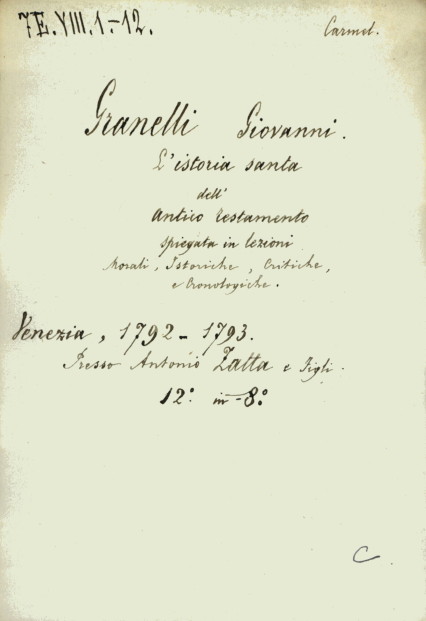 7E.VIII.1.-12.
Carmel.
Granelli Giovanni.
L'istoria santa
dell'
Antico Testamento
spiegata in lezioni
Morali, Istoriche, Critiche,
e Cronologiche.
Venezia, 1792-1793.
Presso Antonio Zatta e Figli.
12.° in-8.°
C